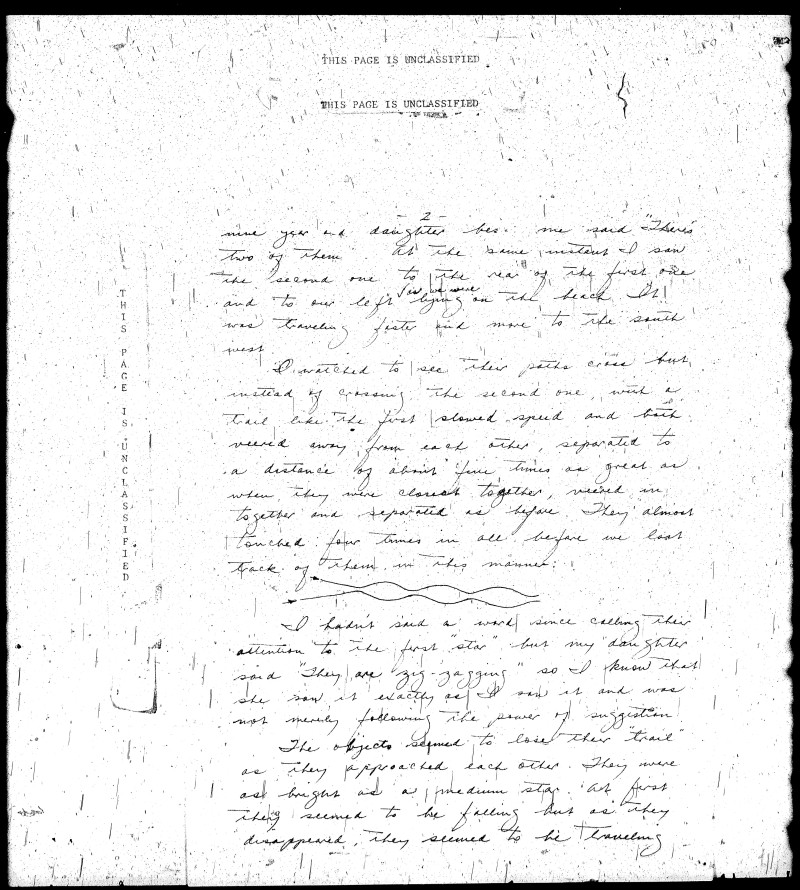 THIS PAGE IS UNCLASSIFIED
THIS PAGE IS UNCLASSIFIED
- 2 -
nine year old daughter said "There's
two of them At the same instant I saw
the second one to the rear of the first one
and to our left as we were lying on the beach. It
was traveling faster and more to the south
west
I watched to see their paths cross but
instead of crossing the second one, with a
trail like the first slowed speed and both
veered away from each other, separated to
a distance of about five times as great as
when they were closest together, veered in
together and separated as before. They almost
touched four times in all before we lost
track of them in this manner:
I hadn't said a word since calling their
attention to the first "star" but my daughter
said "They are zig-zagging" so I know that
she saw it exactly as I saw it and was
not merely following the power of suggestion
The objects seemed to lose their "trail"
as they approached each other. They were
as bright as a medium star. At first
they seemed to be falling but as they
disappeared, they seemed to be traveling
THIS PAGE IS UNCLASSIFIED